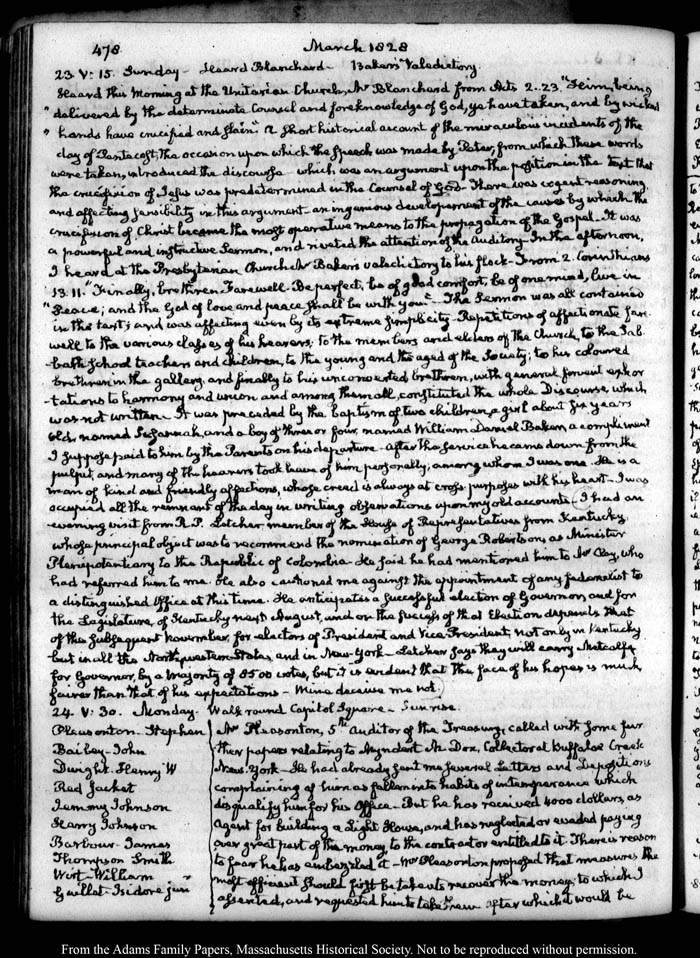 478
March 1828
23. V: 15. Sunday - Heard Blanchard - Bakers Valedictory.
Heard this Morning at the Unitarian Church, Mr Blanchard from Acts 2. 23. "Him, being
" delivered by the determinate Counsel and foreknowledge of God, ye have taken, and by wicked
" hands have crucified and slain." A short historical account of the miraculous incidents of the
day of Pentecost, the occasion upon which the speech was made by Peter, from which these words
were taken, introduced the discourse which was an argument upon the position in the text that
the crucifixion of Jesus was predetermined in the Counsel of God - There was cogent reasoning
and affecting sensibility in this argument - an ingenious developement of the causes by which the
crucifixion of Christ became the most operative means to the propagation of the Gospel - It was
a powerful and instructive Sermon, and riveted the attention of the Auditory - In the afternoon,
I heard at the Presbyterian Church Mr Bakers valedictory to his flock - From 2. Corinthians
13. 11. "Finally, brethren Farewell - Be perfect, be of good comfort, be of one mind, live in
"Peace; and the God of love and peace shall be with you" - The Sermon was all contained
in the text; and was affecting even by its extreme simplicity - Repetitions of affectionate fare
well to the various classes of his hearers; to the members and elders of the Church, to the Sab-
bath School teachers and children, to the young and the aged of the Society; to his coloured
brethren in the gallery, and finally to his unconverted brethren, with general fervent exhor
-tations to harmony and union and among them all, constituted the whole Discourse, which
was not written. It was preceded by the baptism of two children, a girl about six years
old, named Susannah, and a boy of three or four, named William Daniel Baker, a compliment
I suppose paid to him by the Parents on his departure - After the service he came down from the
pulpit, and many of the hearers took leave of him personally, among whom I was one. He is a
man of kind and friendly affections, whose creed is always at cross purposes with his heart - I was
occupied all the remnant of the day in writing observations upon my old accounts. I had an
evening visit from R. P. Letcher, member of the House of Representatives from Kentucky,
whose principal object was to recommend the nomination of George Robertson, as Minister
Plenipotentiary to the Republic of Colombia. He said he had mentioned him to Mr Clay, who
had referred him to me. He also cautioned me against the appointment of any federalist to
a distinguished Office at this time. He anticipates a successful election of Governor, and for
the Legislature, of Kentucky next August, and on the success of that Election depends that
of the subsequent November, for electors of President and Vice President, not only in Kentucky
but in all the Northwestern States, and in New-York - Letcher says they will carry Metcalfe
for Governor, by a majority of 8500 votes, but it is evident that the face of his hopes is much
fairer than that of his expectations - Mine deceive me not.
24. V: 30. Monday. Walk round Capitol Square - Sunrise.
Pleasonton - Stephen
Bailey - John
Dwight. Henry W
Red Jacket
Jemmy Johnson
Harry Johnson
Barbour - James
Thompson Smith
Wirt - William
Guillet - Isidore jun
Mr Pleasonton, 5th Auditor of the Treasury, called with some fur
ther papers relating to Myndert M. Dox, Collector at Buffaloe Creek
New York - He had already sent me several Letters and Depositions
complaining of him as fallen into habits of intemperance which
disqualify him for his Office - But he has received 4000 dollars, as
Agent for building a Light House, and has neglected or evaded paying
over great part of the money, to the contractor entitled to it. There is reason
to fear he has embezzled it - Mr Pleasonton proposed that measures the
most efficient should first be taken to recover the money; to which I
assented, and requested him to take them after which it would be
From the Adams Family Papers, Massachusetts Historical Society. Not to be reproduced without permission.